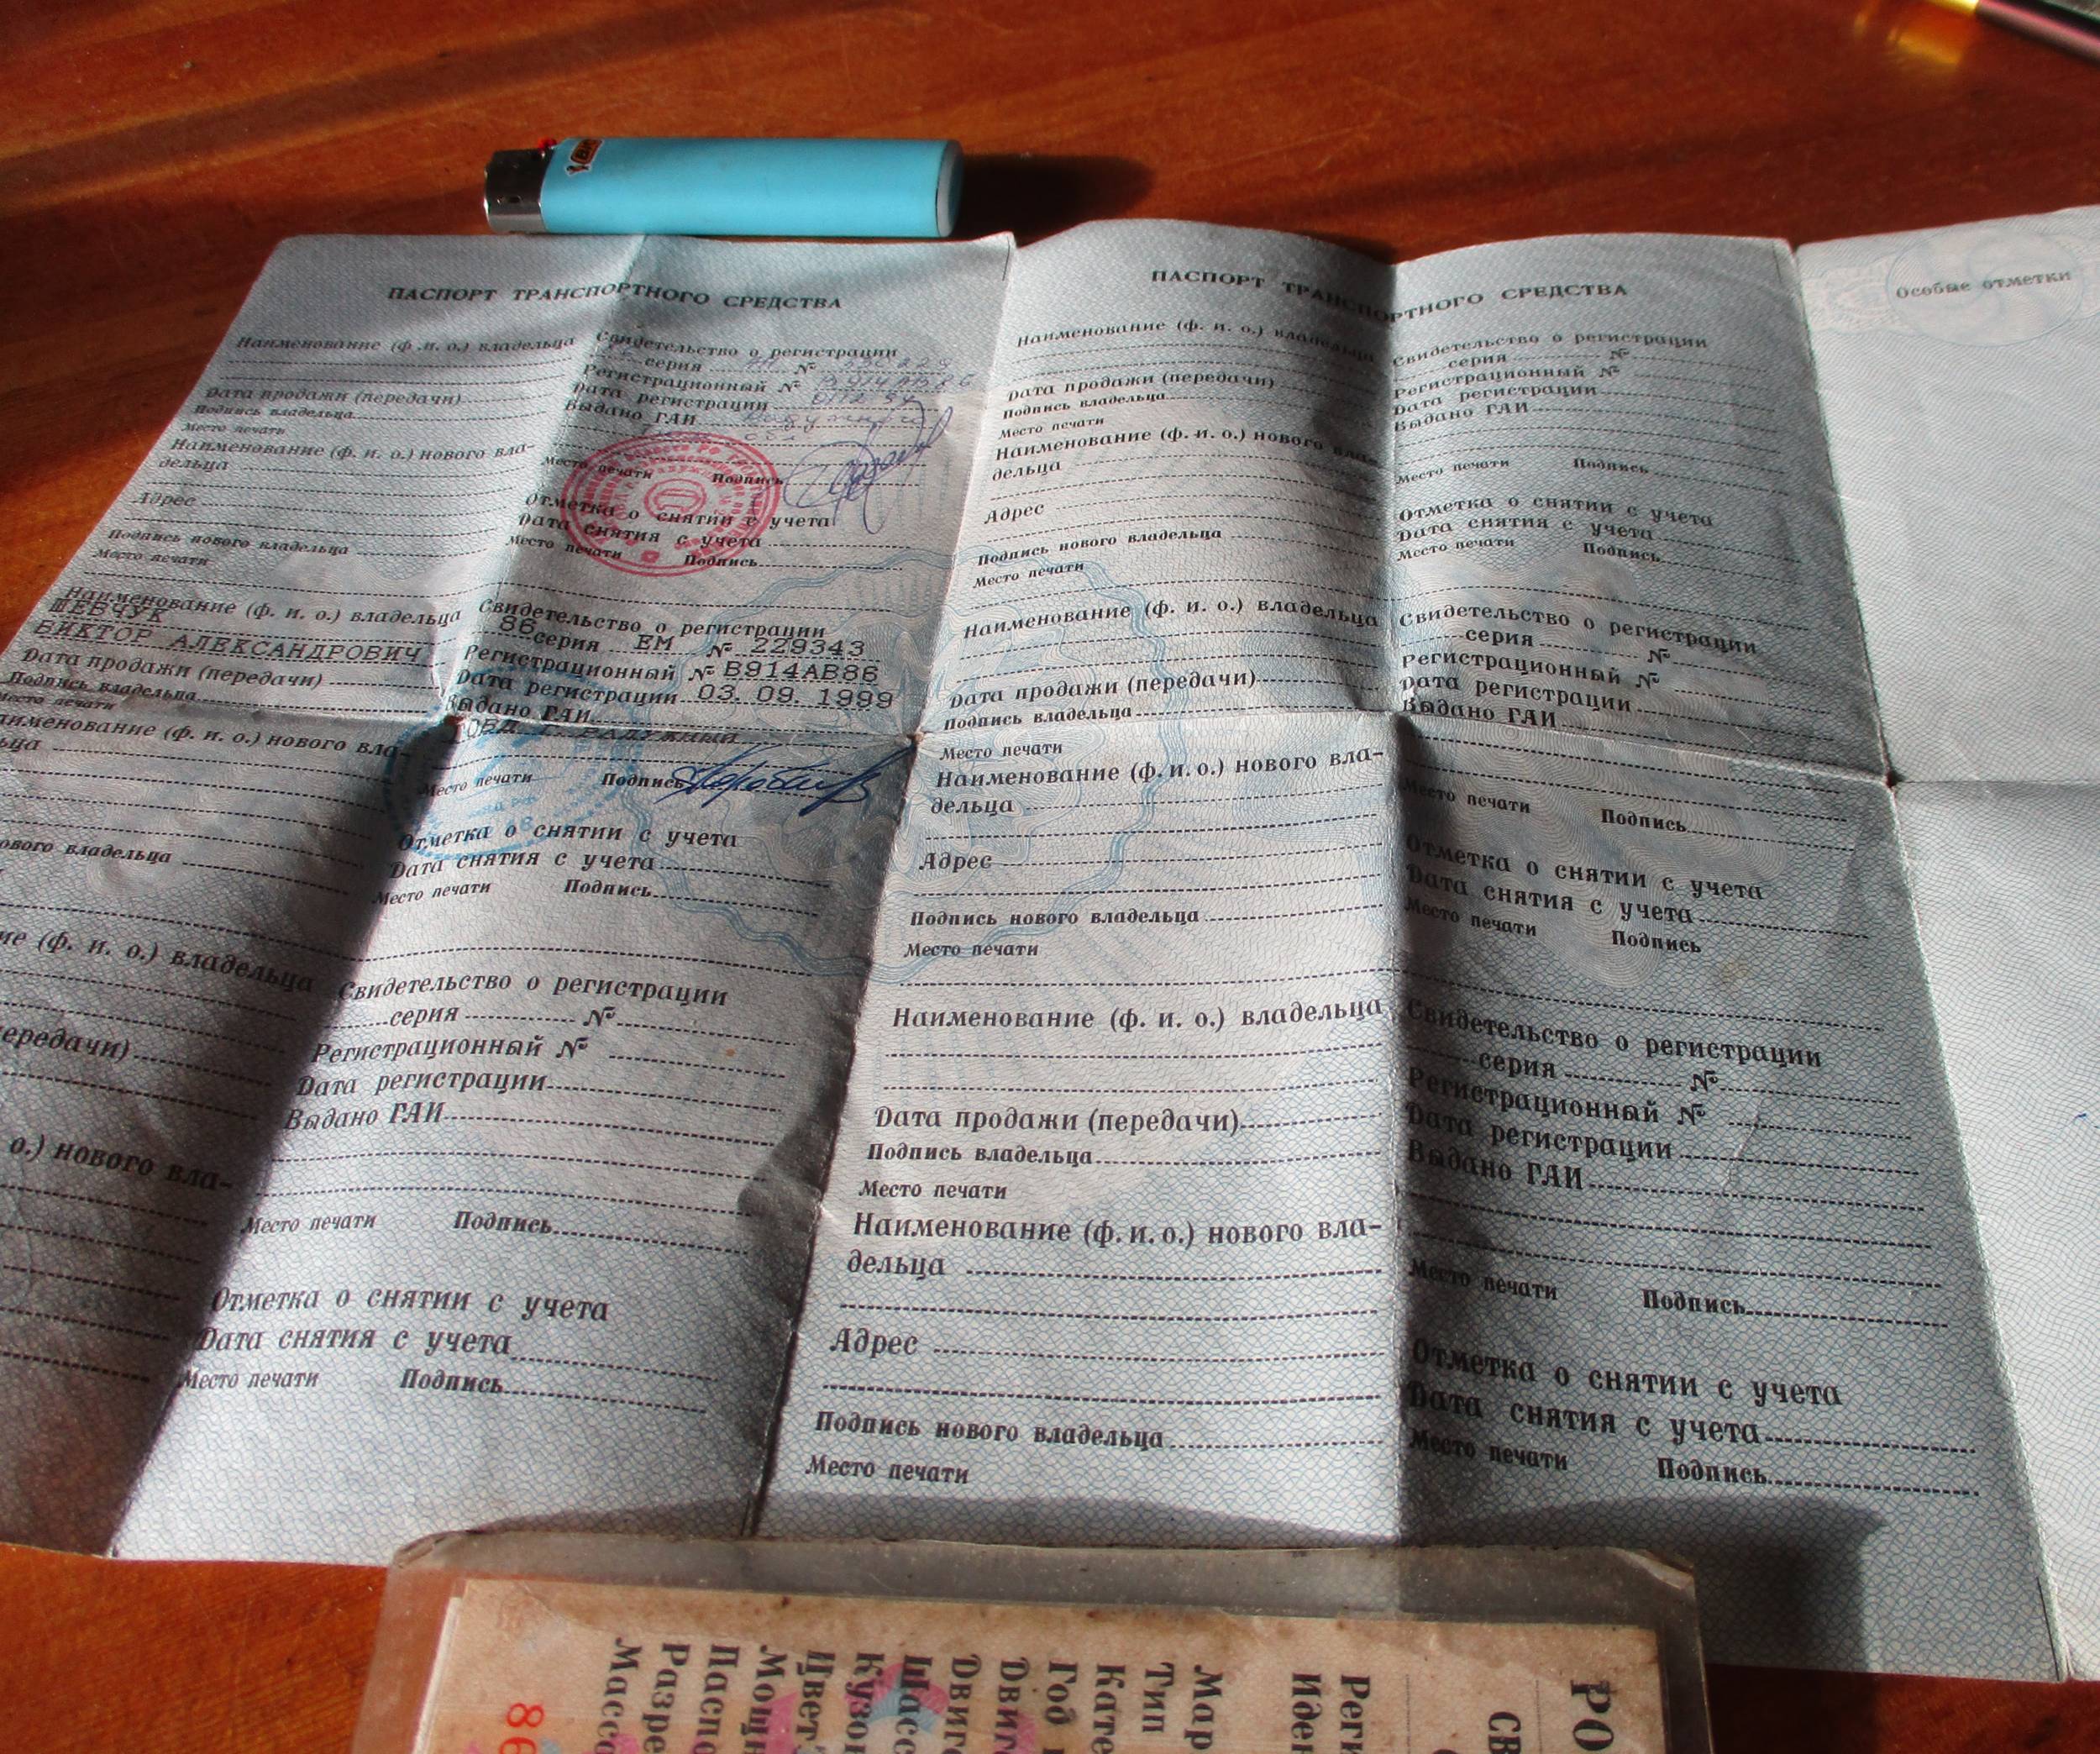 BIC
ПАСПОРТ ТРАНСПОРТНОГО СРЕДСТВА
Наименование (ф. и. о.) владельца
Дата продажи (передачи)
Подпись владельца
Место печати
Наименование (ф. и. о.) нового вла-
дельца
Адрес
Подпись нового владельца
Место печати
Наименование (ф. и. о.) владельца
ШЕВЧУК
ВИКТОР АЛЕКСАНДРОВИЧ
Дата продажи (передачи)
Подпись владельца
Место печати
аименование (ф. и. о.) нового вла-
ьца
ового владельца
ие (ф. и. о.) владельца
ередачи)
о.) нового вла-
Свидетельство о регистрации
серия №
Регистрационный № В914АВ86
Дата регистрации
Выдано ГАИ
Место печати Подпись
Отметка о снятии с учета
Дата снятия с учета
Место печати Подпись
Свидетельство о регистрации
86 серия ЕМ № 229343
Регистрационный № В914АВ86
Дата регистрации 03. 09. 1999
Выдано ГАИ
ГОВД Г. РАДУЖНЫЙ
Место печати Подпись
Отметка о снятии с учета
Дата снятия с учета
Место печати Подпись
Свидетельство о регистрации
серия №
Регистрационный №
Дата регистрации
Выдано ГАИ
Место печати Подпись
Отметка о снятии с учета
Дата снятия с учета
Место печати Подпись
ПАСПОРТ ТРАНСПОРТНОГО СРЕДСТВА
Наименование (ф. и. о.) владельца
Дата продажи (передачи)
Подпись владельца
Место печати
Наименование (ф. и. о.) нового вла-
дельца
Адрес
Подпись нового владельца
Место печати
Наименование (ф. и. о.) владельца
Дата продажи (передачи)
Подпись владельца
Место печати
Наименование (ф. и. о.) нового вла-
дельца
Адрес
Подпись нового владельца
Место печати
Наименование (ф. и. о.) владельца
Дата продажи (передачи)
Подпись владельца
Место печати
Наименование (ф. и. о.) нового вла-
дельца
Адрес
Подпись нового владельца
Место печати
Свидетельство о регистрации
серия №
Регистрационный №
Дата регистрации
Выдано ГАИ
Место печати Подпись
Отметка о снятии с учета
Дата снятия с учета
Место печати Подпись
Свидетельство о регистрации
серия №
Регистрационный №
Дата регистрации
Выдано ГАИ
Место печати Подпись
Отметка о снятии с учета
Дата снятия с учета
Место печати Подпись
Свидетельство о регистрации
серия №
Регистрационный №
Дата регистрации
Выдано ГАИ
Место печати Подпись
Отметка о снятии с учета
Дата снятия с учета
Место печати Подпись
Особые отметки
РО
СВ
Реги
Иден
Мар
Тип
Кате
Год
Двиг
Двиг
Шасс
Кузо
Цвет
Мощн
Паспо
Разре
Масса
86